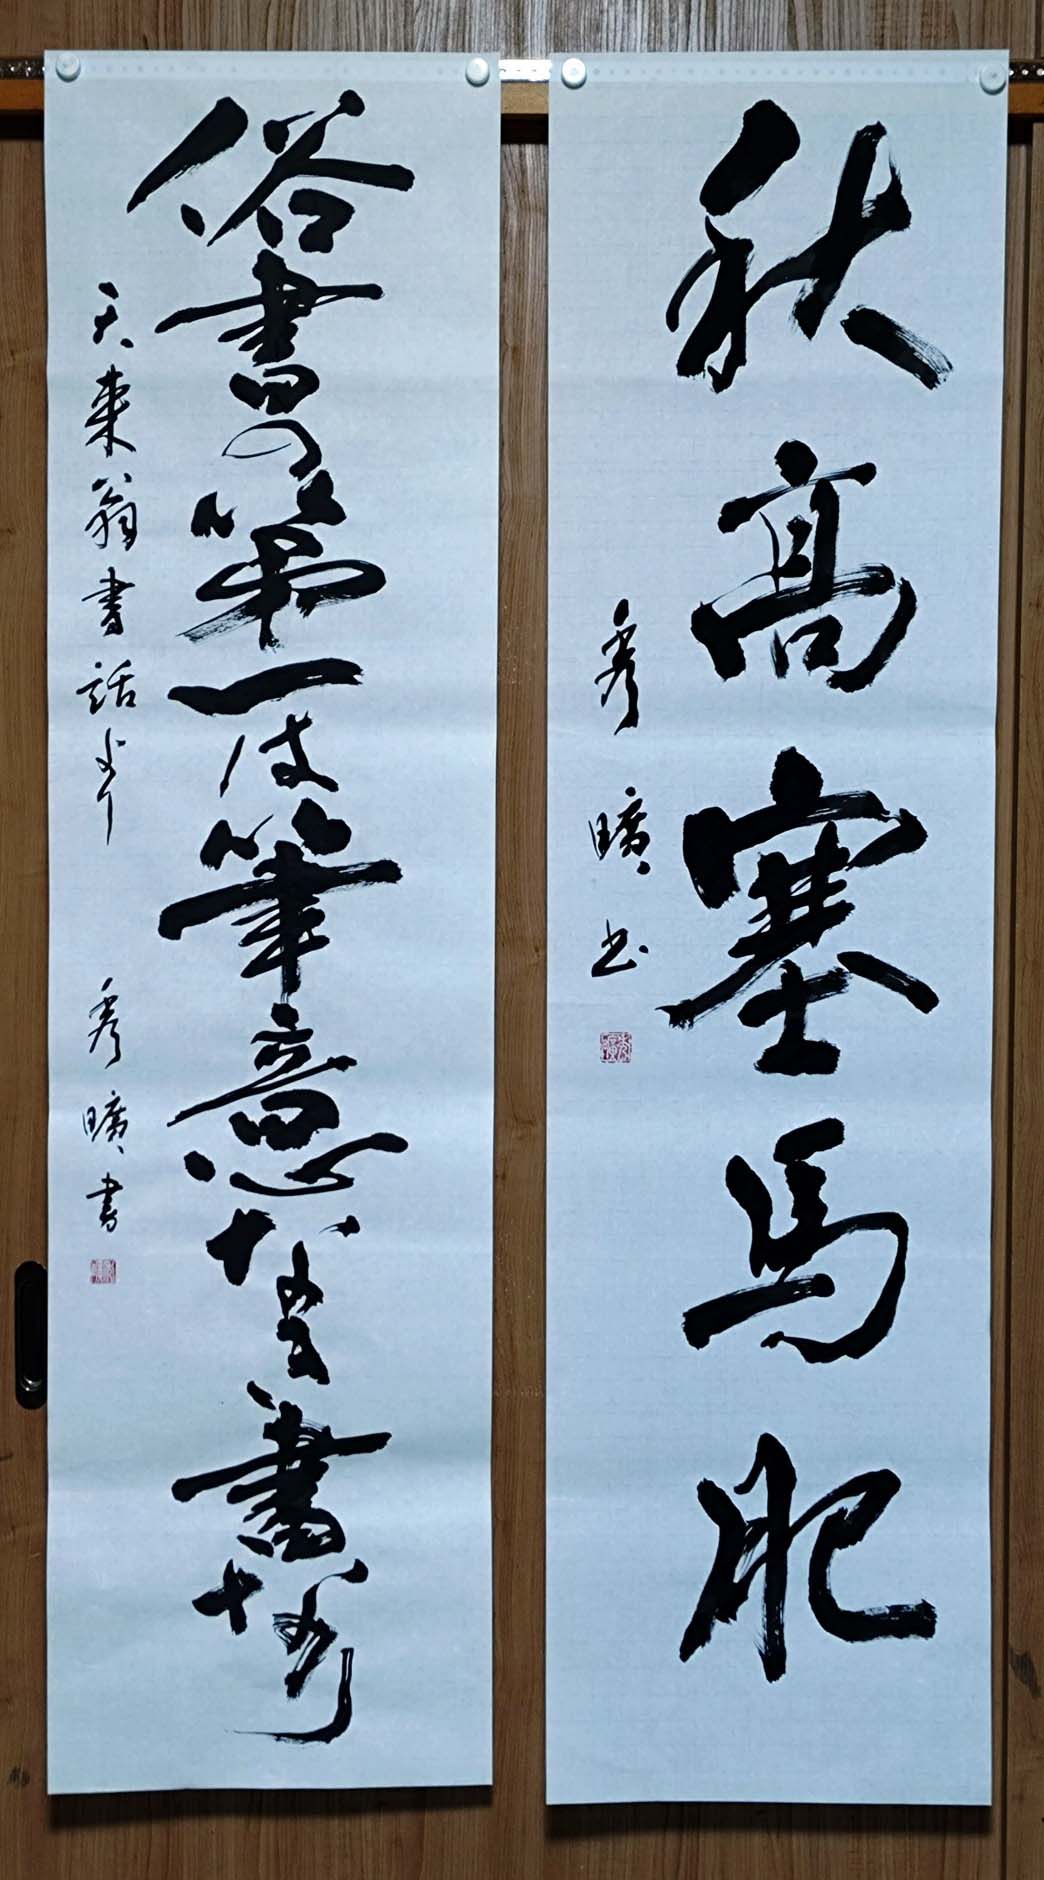 秋高塞馬肥
秀曠书
俗書の第一は筆意なき書なり
天來翁書話より 秀曠書